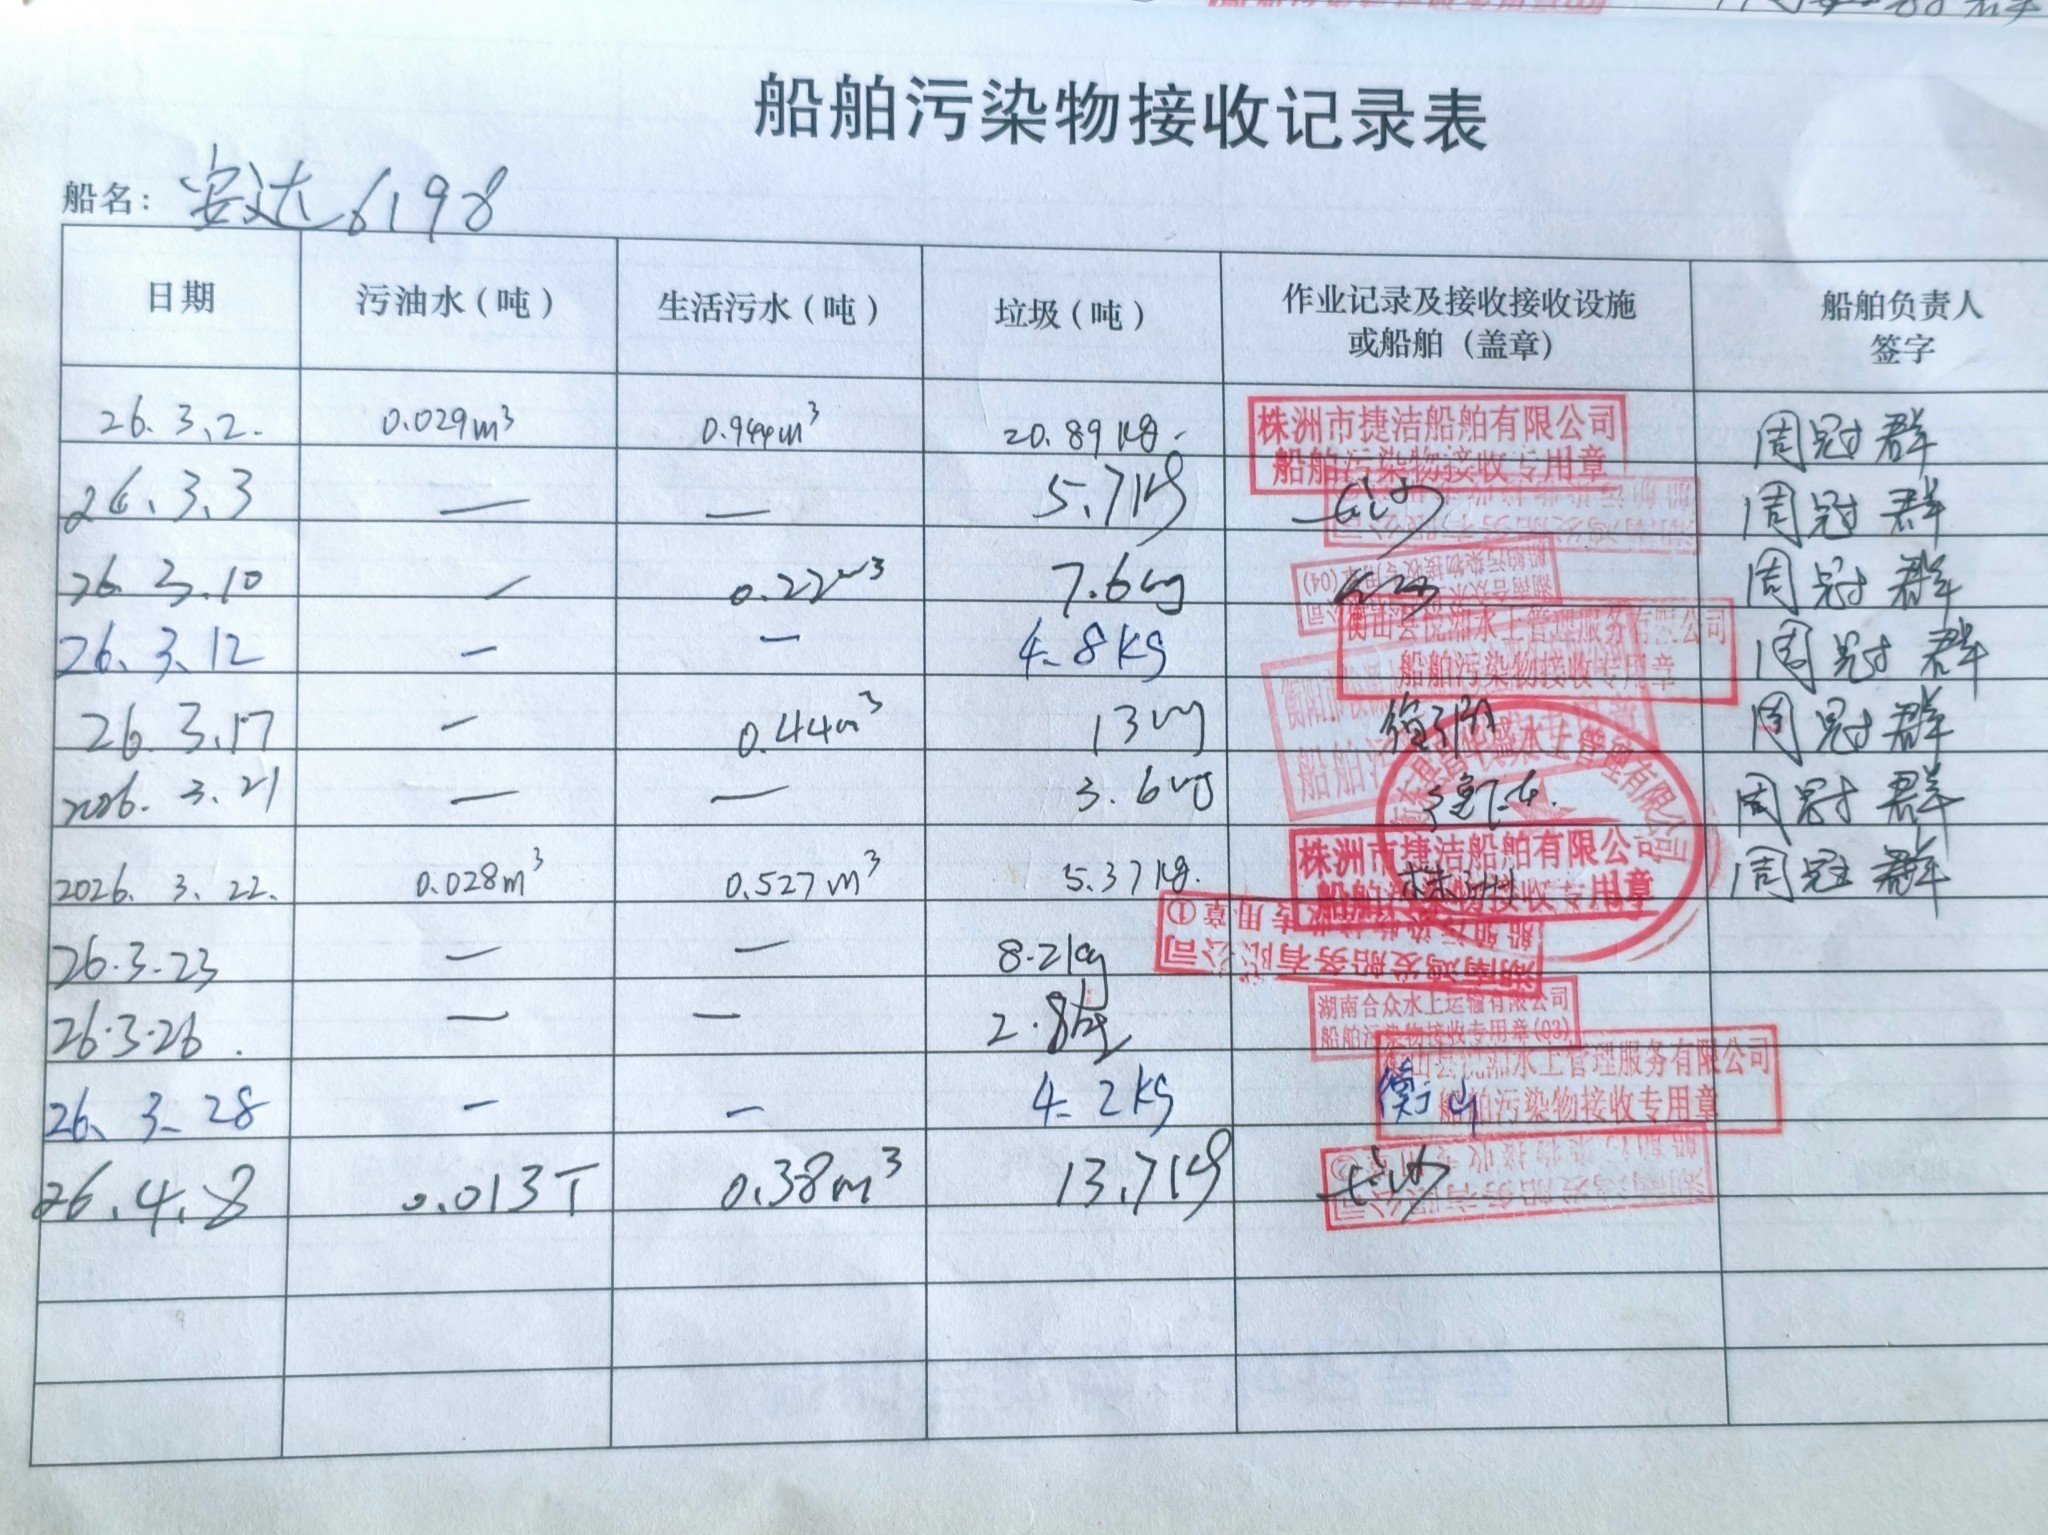 船舶污染物接收记录表
船名：安达6198
日期 污油水（吨） 生活污水（吨） 垃圾（吨） 作业记录及接收接收设施或船舶（盖章） 船舶负责人签字
26.3.2. 0.029m³ 0.944m³ 20.89kg. 株洲市捷洁船舶有限公司 船舶污染物接收专用章 周冠群
26.3.3 — — 5.7kg 长沙 周冠群
26.3.10 — 0.22m³ 7.6kg 湖南合众水上运输有限公司 船舶污染物接收专用章(04) 周冠群
26.3.12 — — 4.8kg 衡山县悦湘水上管理服务有限公司 船舶污染物接收专用章 周冠群
26.3.17 — 0.44m³ 13kg 衡阳 周冠群
2026.3.21 — — 3.6kg 水上管理有限公司 周冠群
2026.3.22. 0.028m³ 0.527m³ 5.37kg. 株洲市捷洁船舶有限公司 船舶污染物接收专用章 株洲 周冠群
26.3.23 — — 8.2kg 湖南鸿发船务有限公司 船舶污染物接收专用章①
26.3.26. — — 2.8kg 湖南合众水上运输有限公司 船舶污染物接收专用章(03)
26.3.28 — — 4.2kg 衡山 衡山县悦湘水上管理服务有限公司 船舶污染物接收专用章
26.4.8 0.013T 0.38m³ 13.7kg 长沙